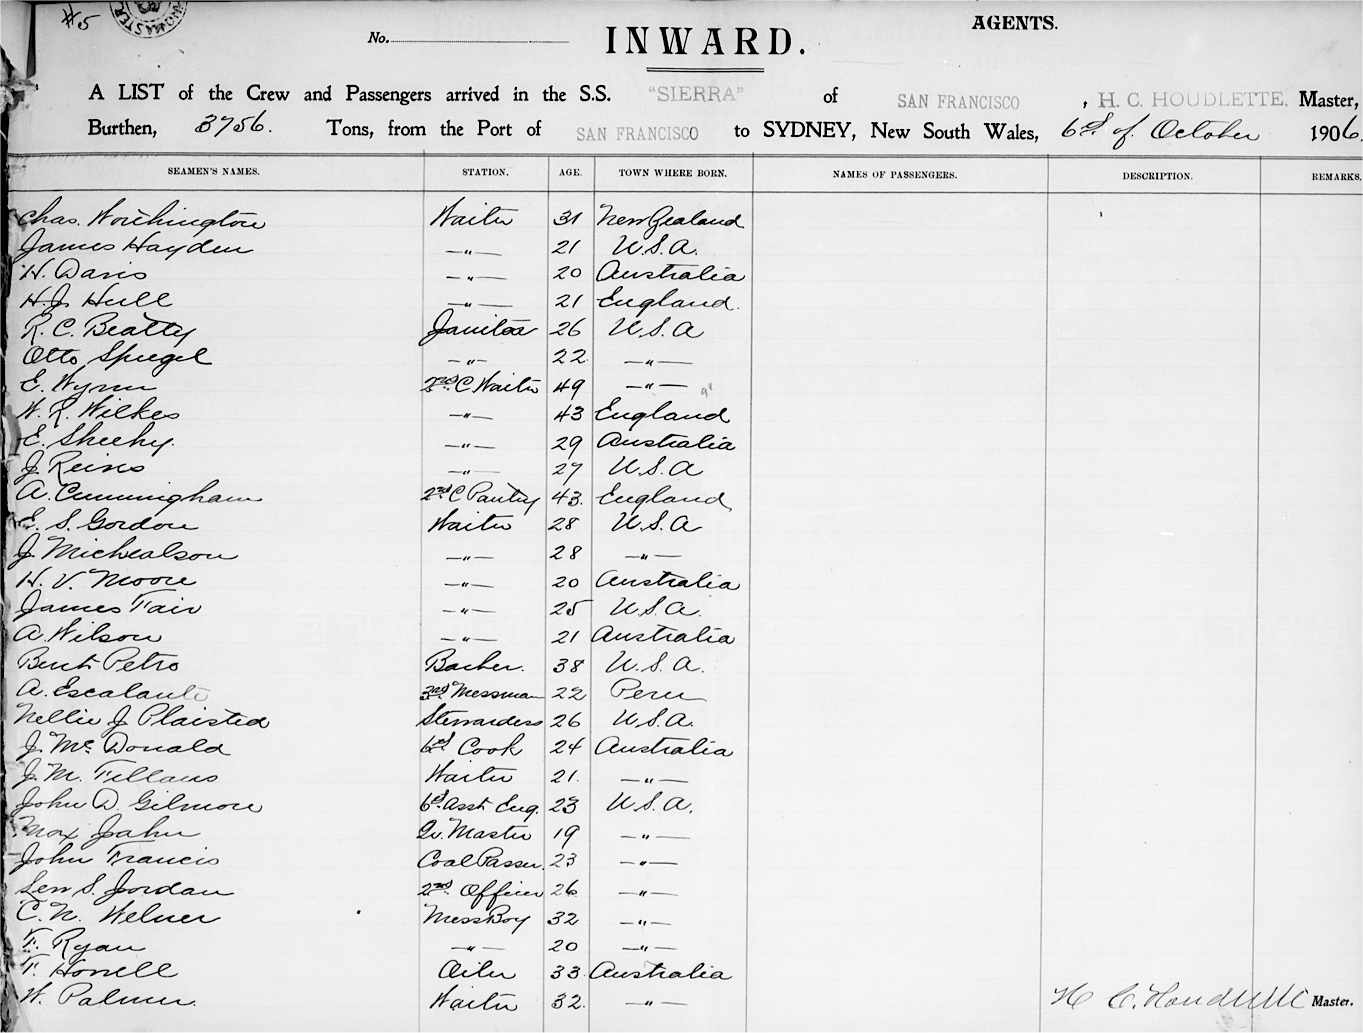 #5
AGENTS.
No. INWARD.
A LIST of the Crew and Passengers arrived in the S.S. "SIERRA" of SAN FRANCISCO, H. C. HOUDLETTE, Master,
Burthen, 3756. Tons, from the Port of SAN FRANCISCO to SYDNEY, New South Wales, 6th of October 1906.
SEAMEN'S NAMES. STATION. AGE. TOWN WHERE BORN. NAMES OF PASSENGERS. DESCRIPTION. REMARKS.
Chas. Worthington Waiter 31 New Zealand
James Hayden —"— 21 U.S.A.
H. Davis —"— 20 Australia
H. J. Hull —"— 21 England.
R. C. Beatty Janitor 26 U.S.A
Otto Spiegel —"— 22 —"—
E. Wynn 2nd C Waiter 49 —"—
W. R. Wilkes —"— 43 England
E. Sheehy. —"— 29 Australia
J. Reins —"— 27 U.S.A
A. Cunningham 2nd C Pantry 43 England
E. S. Gordon Waiter 28 U.S.A
J. Michealson —"— 28 —"—
H. V. Moore —"— 20 Australia
James Fair —"— 25 U.S.A.
A. Wilson —"— 21 Australia
Bent Petro Barber. 38 U.S.A.
A. Escalante 3rd Messman 22 Peru
Nellie J Plaisted Stewardess 26 U.S.A.
J. McDonald 6th Cook 24 Australia
J. M. Fillans Waiter 21. —"—
John D. Gilmore 6th Asst Eng. 23 U.S.A.
Max Jahn Qr. Master 19 —"—
John Francis Coal Passer. 23 —"—
Len S. Jordan 2nd Officer 26 —"—
C. N. Welner Mess Boy 32 —"—
F. Ryan —"— 20 —"—
F. Howell Oiler 33 Australia
W. Palmer. Waiter 32. —"— H. C. Houdlette Master.